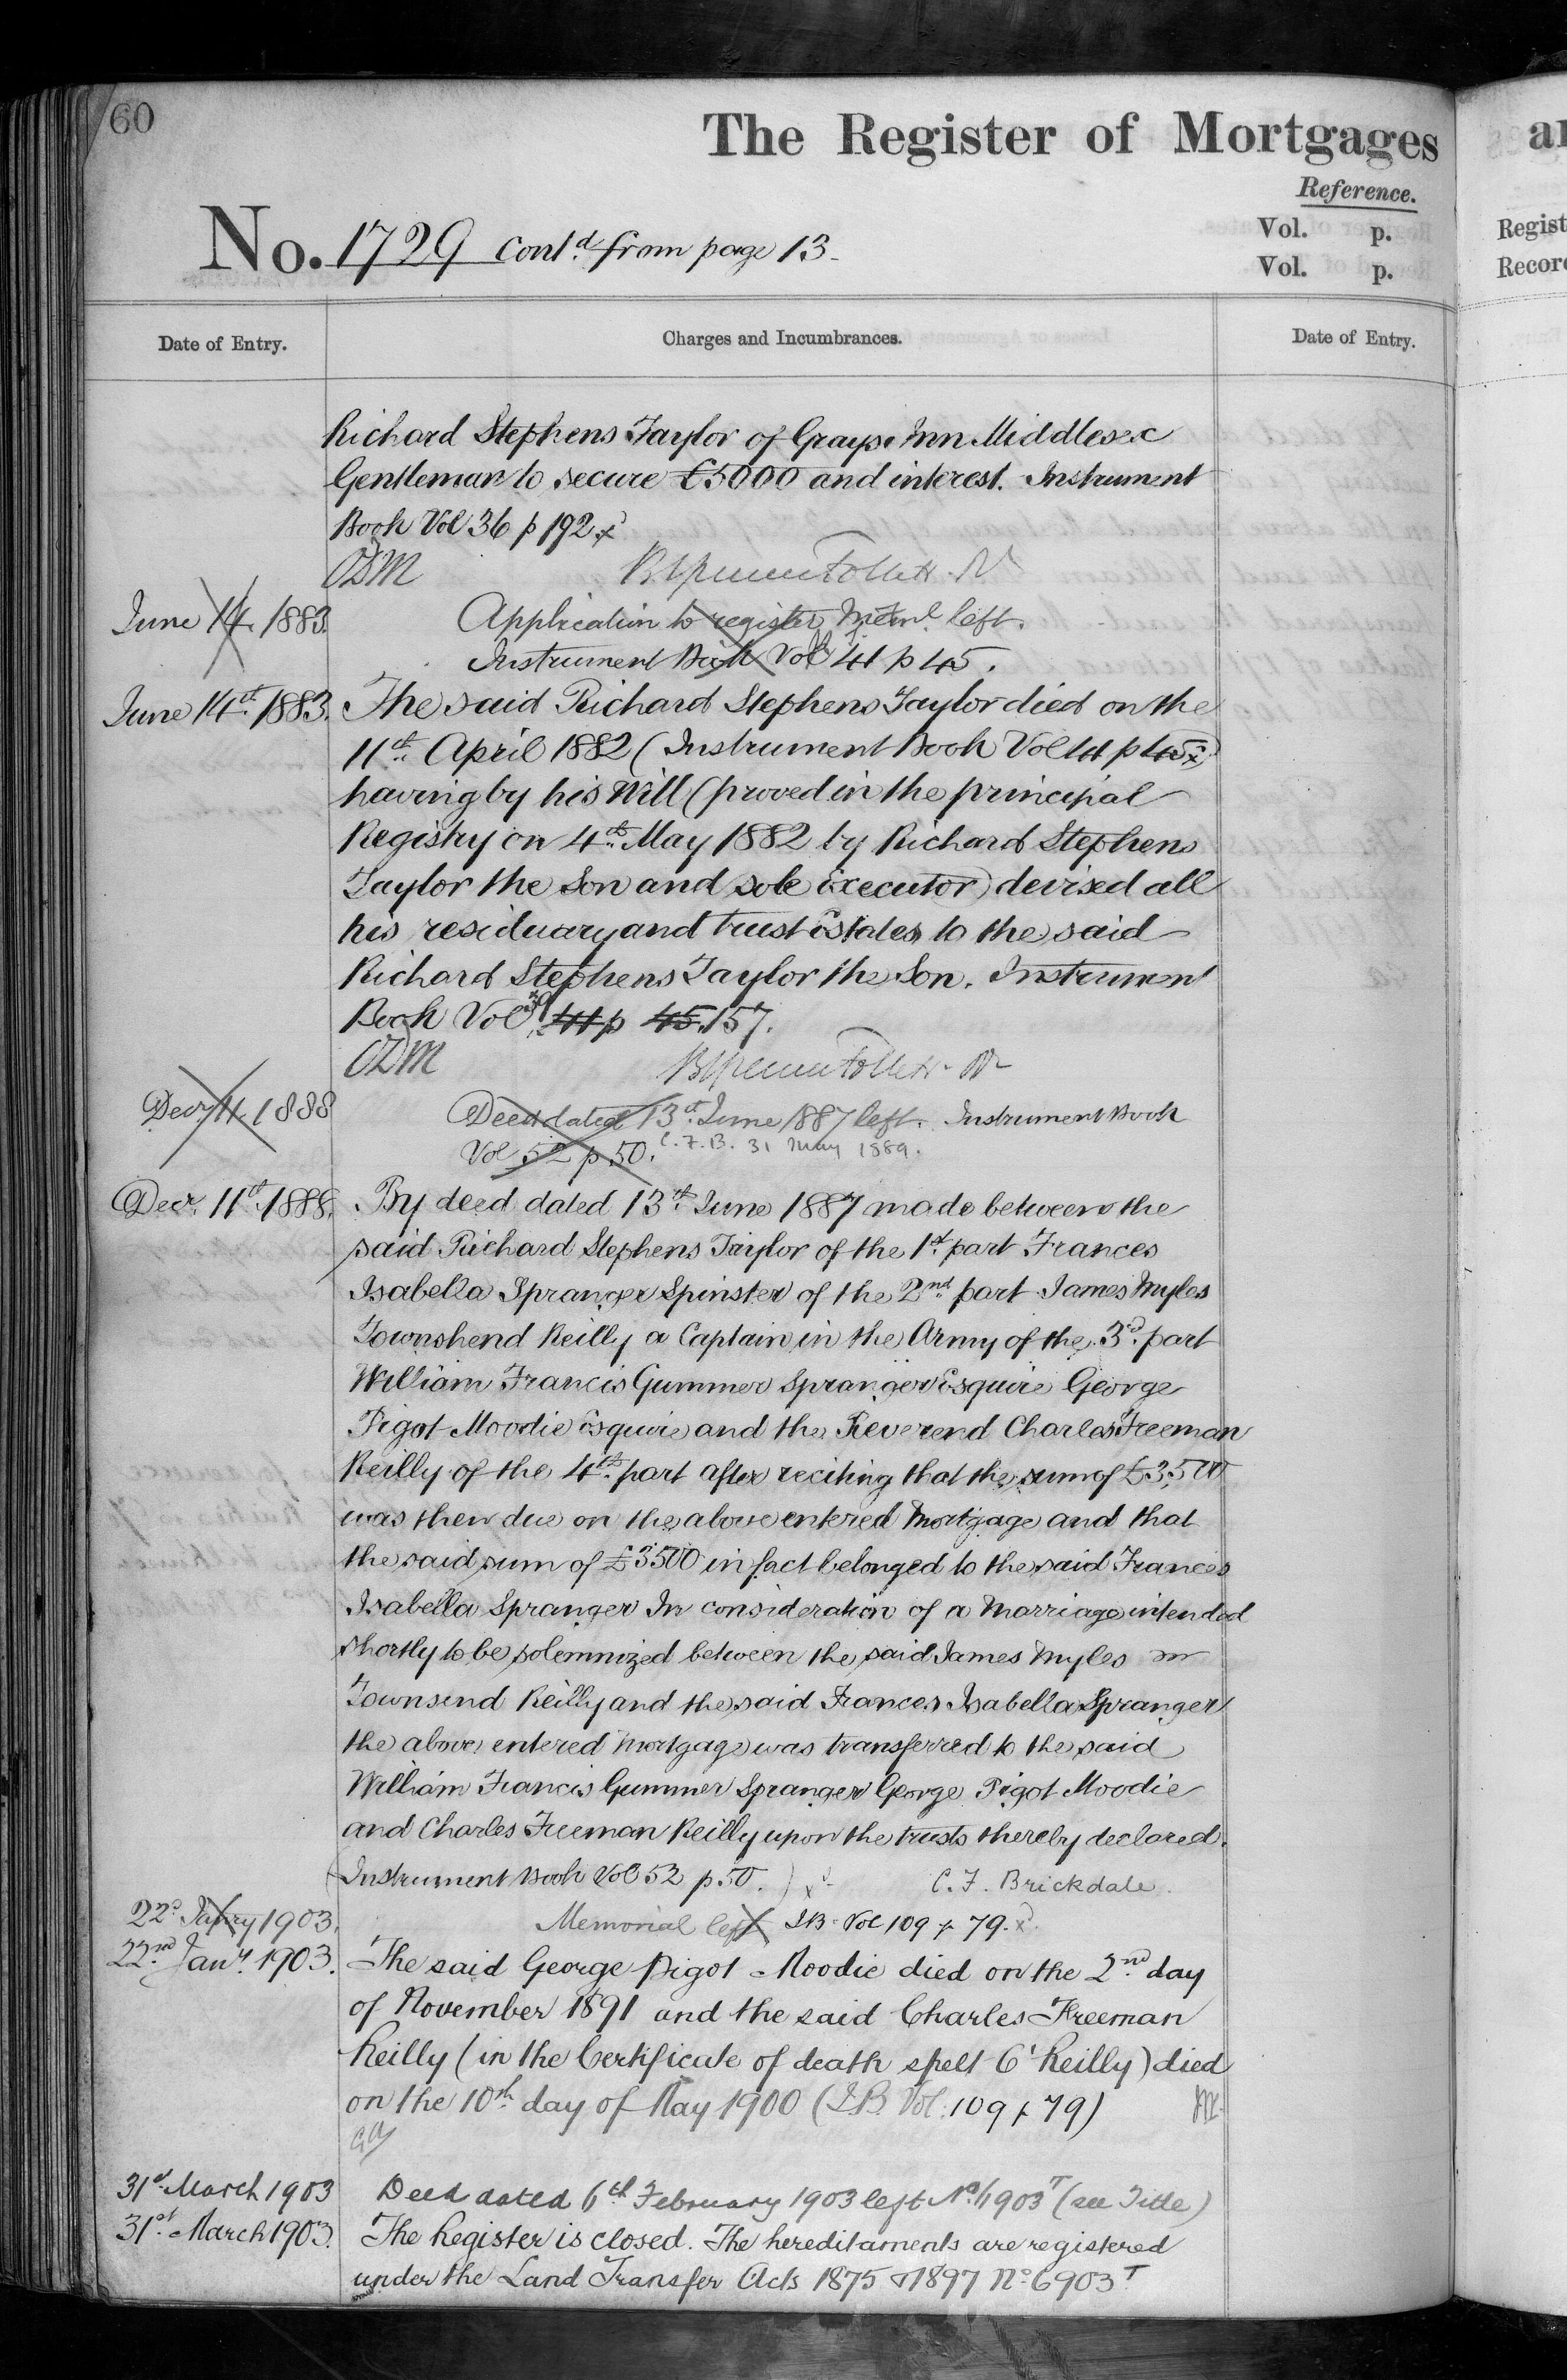 60
The Register of Mortgages
Reference.
Vol. p.
Vol. p.
No. 1729 contd from page 13
Date of Entry.
Charges and Incumbrances.
Date of Entry.
Richard Stephens Taylor of Grays Inn Middlesex
Gentleman to secure £5000 and interest. Instrument
Book Vol 36 p 192
June 14 1883
Application to register left.
Instrument Book Vol 41 p 45.
June 14th 1883. The said Richard Stephens Taylor died on the
11th April 1882 (Instrument Book Vol 41 p 45)
having by his Will (proved in the principal
Registry on 4th May 1882 by Richard Stephens
Taylor the Son and sole Executor) devised all
his residuary and trust Estates to the said
Richard Stephens Taylor the Son. Instrument
Book Vol 39 41 p 45 157.
Decr 11 1888
Deed dated 13th June 1887 left. Instrument Book
Vol 52 p 50. C.F.B. 31 May 1889.
Decr 11th 1888. By deed dated 13th June 1887 made between the
said Richard Stephens Taylor of the 1st part Frances
Isabella Spranger Spinster of the 2nd part James Myles
Townshend Reilly a Captain in the Army of the 3rd part
William Francis Gummer Spranger Esquire George
Pigot Moodie Esquire and the Reverend Charles Freeman
Reilly of the 4th part after reciting that the sum of £3,500
was then due on the above entered Mortgage and that
the said sum of £3500 in fact belonged to the said Frances
Isabella Spranger In consideration of a Marriage intended
shortly to be solemnized between the said James Myles
Townsend Reilly and the said Frances Isabella Spranger
the above entered Mortgage was transferred to the said
William Francis Gummer Spranger George Pigot Moodie
and Charles Freeman Reilly upon the trusts thereby declared.
(Instrument Book Vol 52 p 50.) C. F. Brickdale.
22d Janry 1903.
Memorial left I B Vol 109 p 79.
22nd Jany 1903. The said George Pigot Moodie died on the 2nd day
of November 1891 and the said Charles Freeman
Reilly (in the Certificate of death spelt O'Reilly) died
on the 10th day of May 1900 (I.B. Vol. 109 p 79)
31st March 1903 Deed dated 6th February 1903 left No 6903T (see Title)
31st March 1903. The Register is closed. The hereditaments are registered
under the Land Transfer Acts 1875 & 1897 No 6903T
Regist
Record